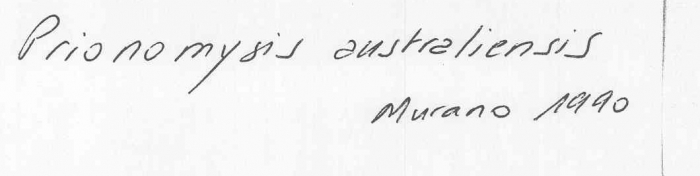 Prionomysis australiensis
Murano 1990